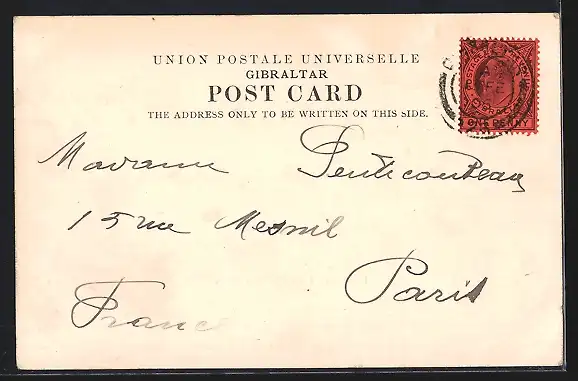 UNION POSTALE UNIVERSELLE
GIBRALTAR
POST CARD
THE ADDRESS ONLY TO BE WRITTEN ON THIS SIDE.
Madame Pentecouteau
15 rue Mesnil
Paris
France
POSTAGE & REVENUE
ONE PENNY